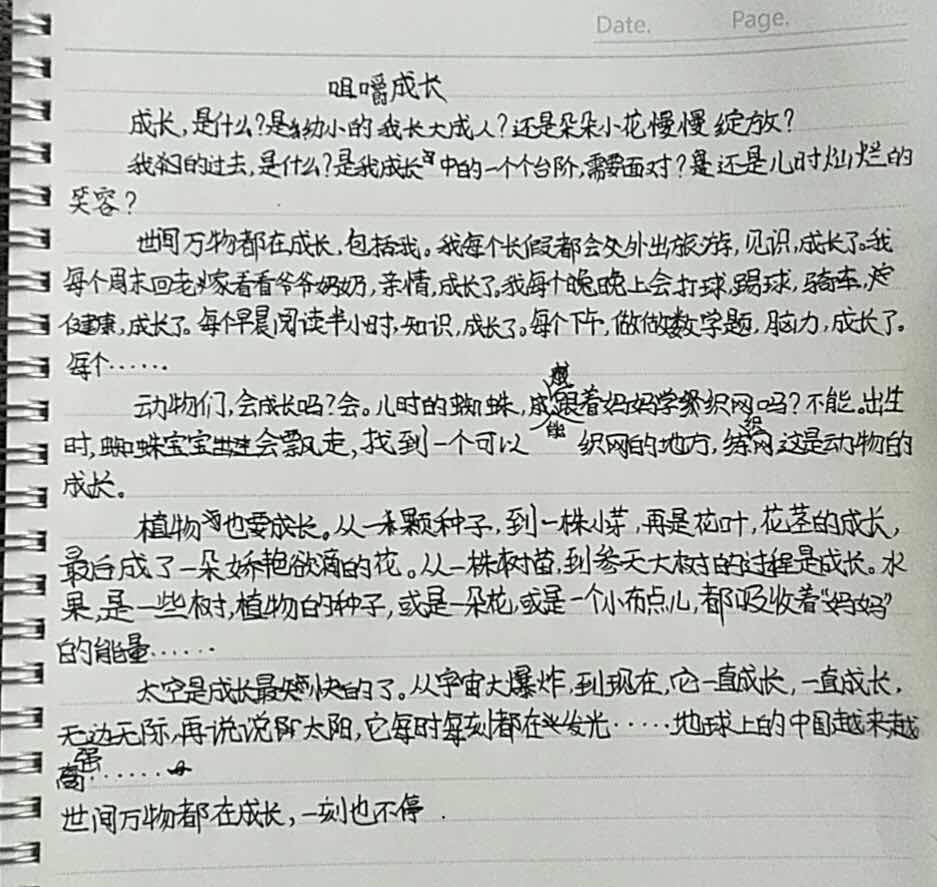 Date. Page.
咀嚼成长
成长,是什么?是幼小的我长大成人?还是朵朵小花慢慢绽放?
我们的过去,是什么?是我成长中的一个个台阶,需要面对?还是儿时灿烂的
笑容?
世间万物都在成长,包括我。我每个长假都会外出旅游,见识,成长了。我
每个周末回老家看看爷爷奶奶,亲情,成长了。我每个晚上会打球,踢球,骑车,
健康,成长了。每个早晨阅读半小时,知识,成长了。每个下午,做做数学题,脑力,成长了。
每个……
动物们,会成长吗?会。儿时的蜘蛛,能跟着妈妈学织网吗?不能。出生
时,蜘蛛宝宝会飘走,找到一个可以能织网的地方,练织网,这是动物的
成长。
植物也要成长。从一颗种子,到一株小芽,再是花叶,花茎的成长,
最后成了一朵娇艳欲滴的花。从一株树苗,到参天大树的过程是成长。水
果,是一些树,植物的种子,或是一朵花,或是一个小布点儿,都吸收着“妈妈”
的能量……
太空是成长最快的了。从宇宙大爆炸,到现在,它一直成长,一直成长,
无边无际,再说说太阳,它每时每刻都在发光……地球上的中国越来越
强……
世间万物都在成长,一刻也不停.